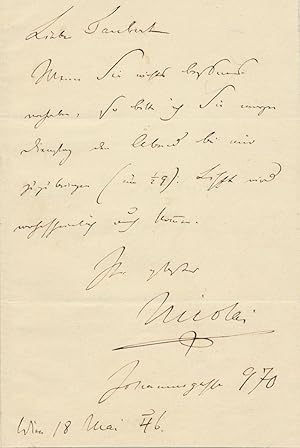 Lieber Taubert
Wenn Sie nichts besseres
vorhaben, so bitte ich Sie morgen
Dienstag den Abend bei mir
zuzubringen (um ½9). Liszt wird
wahrscheinlich auch kommen.
Ihr
Nicolai
Johannesgasse 970
Wien 18 Mai 46.